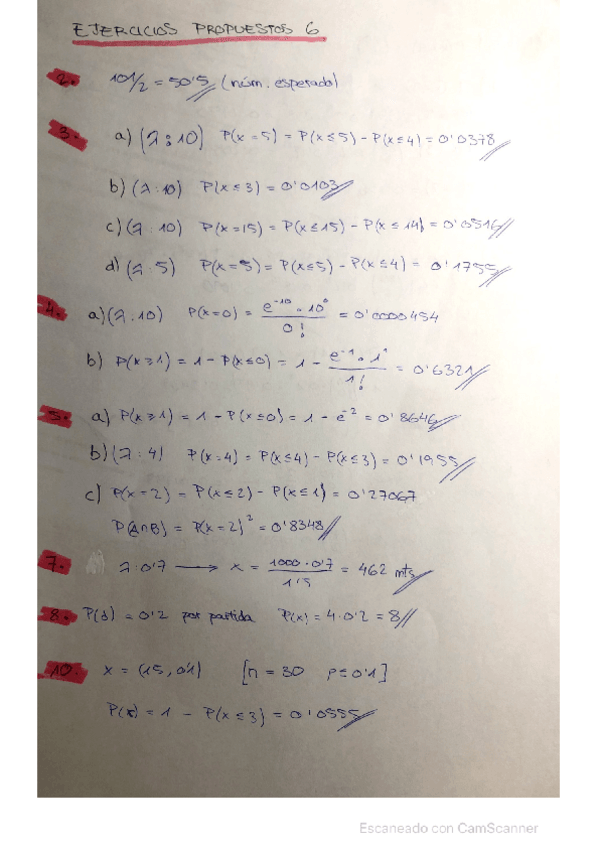 EJERCICIOS PROPUESTOS 6
2. 101/2 = 50'5 (núm. esperado)
3. a) (λ:10) P(x=5) = P(x≤5) - P(x≤4) = 0'0378
b) (λ:10) P(x≤3) = 0'0103
c) (λ:10) P(x=15) = P(x≤15) - P(x≤14) = 0'0516
d) (λ:5) P(x=5) = P(x≤5) - P(x≤4) = 0'1755
4. a) (λ:10) P(x=0) = e⁻¹⁰ · 10⁰ / 0! = 0'0000454
b) P(x≥1) = 1 - P(x≤0) = 1 - e⁻¹ · 1¹ / 1! = 0'6321
5. a) P(x≥1) = 1 - P(x≤0) = 1 - e⁻² = 0'8646
b) (λ:4) P(x=4) = P(x≤4) - P(x≤3) = 0'1955
c) P(x=2) = P(x≤2) - P(x≤1) = 0'27067
P(A∩B) = P(x=2)² = 0'8348
7. λ:0'7 → x = 1000·0'7 / 1'5 = 462 mts
8. P(d) = 0'2 por partida P(x) = 4·0'2 = 8
10. x = (15, 0'1) [n = 30 p≤0'1]
P(x) = 1 - P(x≤3) = 0'0555
Escaneado con CamScanner